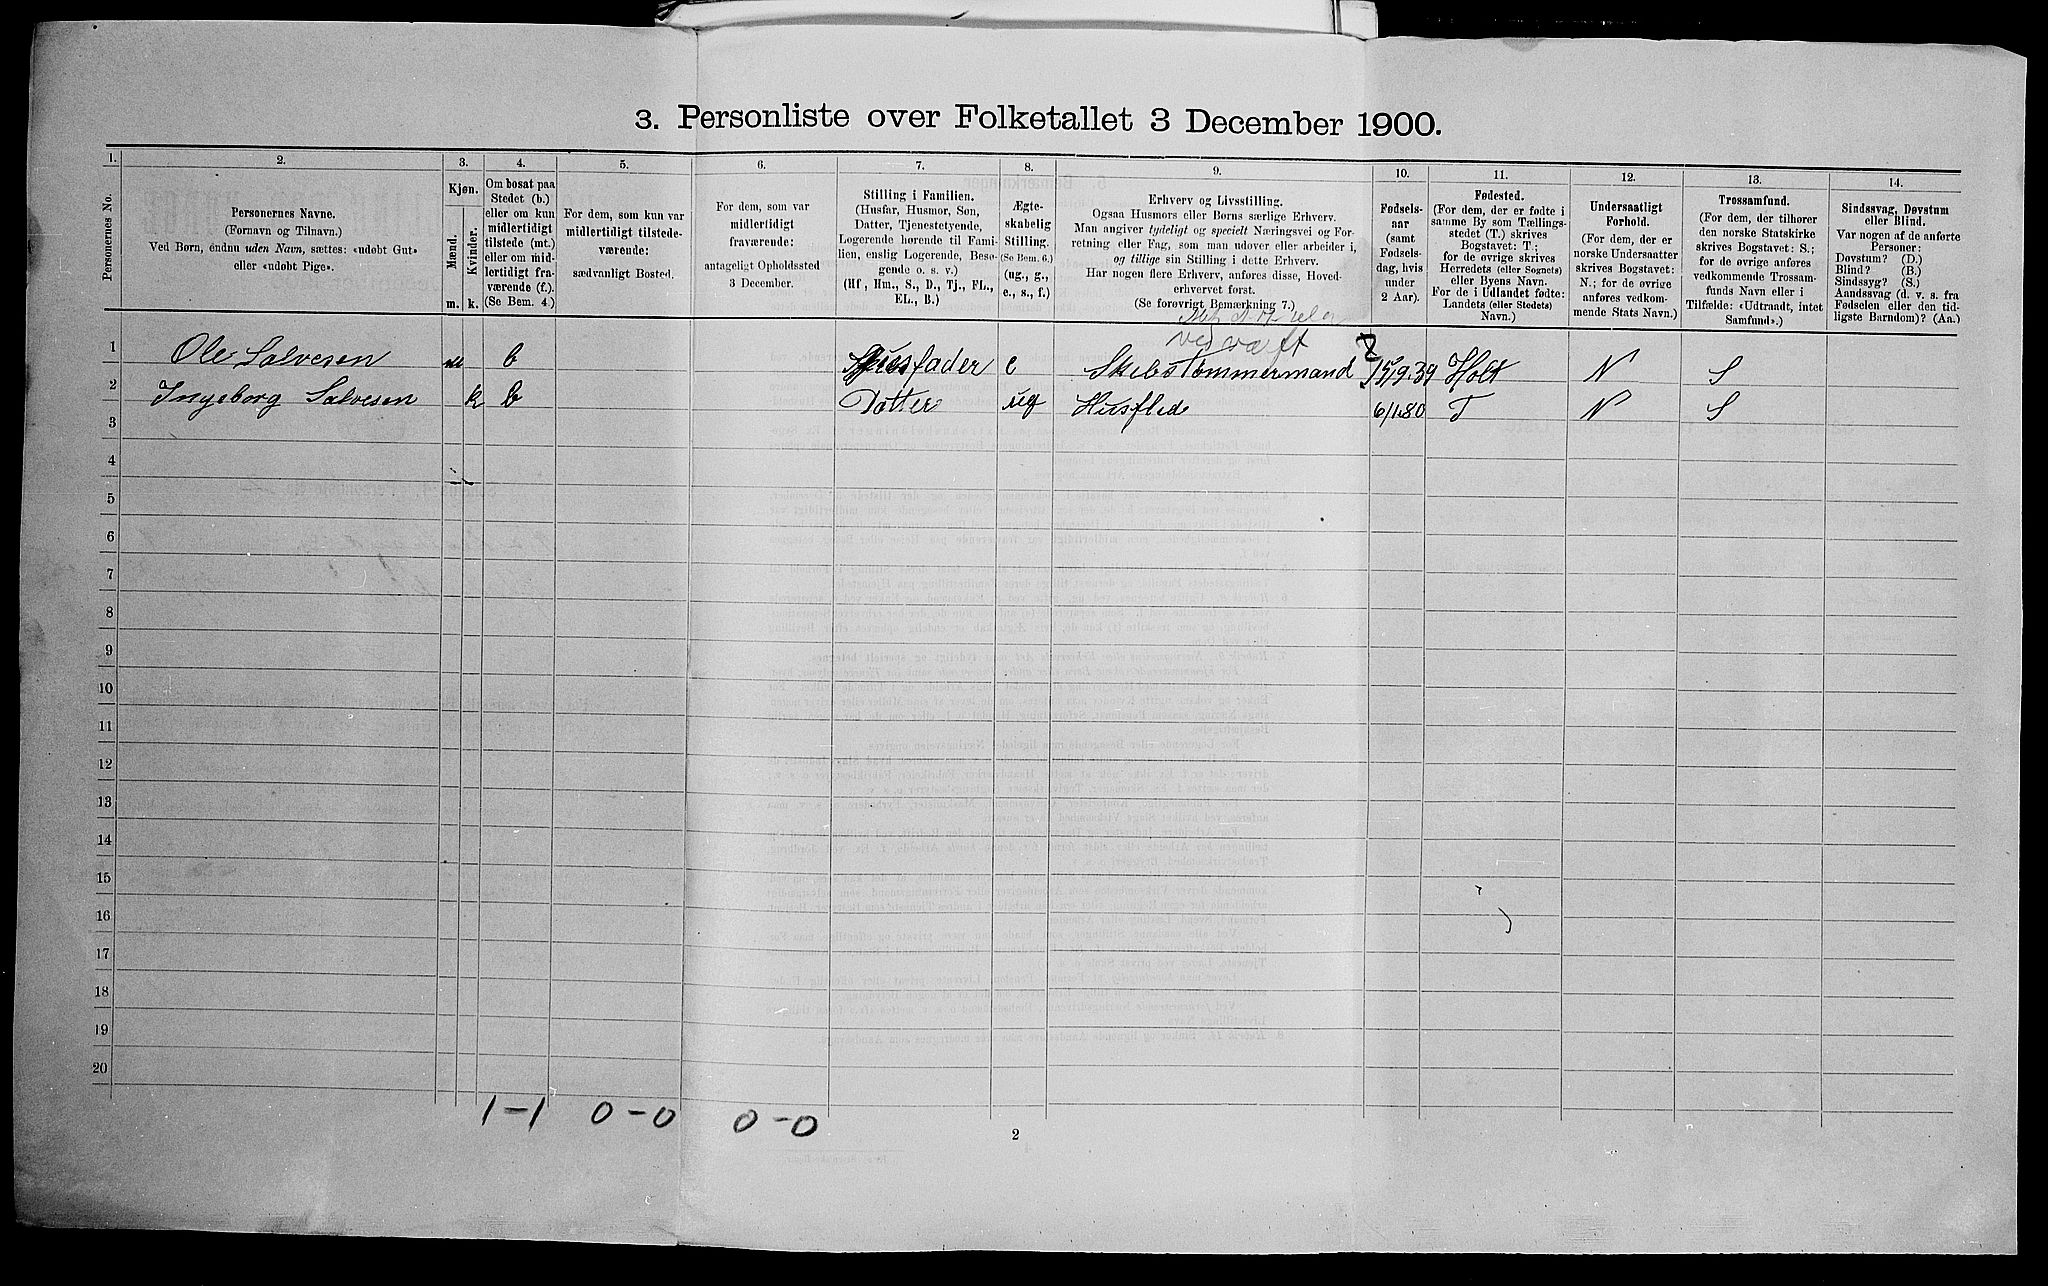 3. Personliste over Folketallet 3 December 1900.
1. 2. 3. 4. 5. 6. 7. 8. 9. 10. 11. 12. 13. 14.
Personernes No.
Personernes Navne.
(Fornavn og Tilnavn.)
Ved Børn, endnu uden Navn, sættes: «udøbt Gut»
eller «udøbt Pige».
Kjøn.
Mænd. Kvinder.
m. k.
Om bosat paa
Stedet (b.)
eller om kun
midlertidigt
tilstede (mt.)
eller om mid-
lertidigt fra-
værende (f.).
(Se Bem. 4.)
For dem, som kun var
midlertidigt tilstede-
værende:
sædvanligt Bosted.
For dem, som var
midlertidigt
fraværende:
antageligt Opholdssted
3 December.
Stilling i Familien.
(Husfar, Husmor, Søn,
Datter, Tjenestetyende,
Logerende hørende til Fami-
lien, enslig Logerende, Besø-
gende o. s. v.)
(Hf, Hm., S., D., Tj., FL.,
EL., B.)
Ægte-
skabelig
Stilling.
(Se Bem. 6.)
(ug., g.,
e., s., f.)
Erhverv og Livsstilling.
Ogsaa Husmors eller Børns særlige Erhverv.
Man angiver tydeligt og specielt Næringsvei og For-
retning eller Fag, som man udover eller arbeider i,
og tillige sin Stilling i dette Erhverv.
Har nogen flere Erhverv, anføres disse, Hoved-
erhvervet først.
(Se forøvrigt Bemærkning 7.)
Fødsels-
aar
(samt
Fødsels-
dag, hvis
under
2 Aar).
Fødested.
(For dem, der er fødte i
samme By som Tællings-
stedet (T.) skrives
Bogstavet: T.;
for de øvrige skrives
Herredets (eller Sognets)
eller Byens Navn.
For de i Udlandet fødte:
Landets (eller Stedets)
Navn.)
Undersaatligt
Forhold.
(For dem, der er
norske Undersaatter
skrives Bogstavet:
N.; for de øvrige
anføres vedkom-
mende Stats Navn.)
Trossamfund.
(For dem, der tilhører
den norske Statskirke
skrives Bogstavet: S.;
for de øvrige anføres
vedkommende Trossam-
funds Navn eller i
Tilfælde: «Udtraadt, intet
Samfund».)
Sindssvag, Døvstum
eller Blind.
Var nogen af de anførte
Personer:
Døvstum? (D.)
Blind? (B.)
Sindssyg? (S.)
Aandssvag (d. v. s. fra
Fødselen eller den tid-
ligste Barndom)? (Aa.)
ved værft
1 Ole Salvesen m b Husfader e Skibstømmermand 15/9.39 Holt N S
2 Ingeborg Salvesen k b Datter ug Husflid 6/1.80 T N S
3
4
5
6
7
8
9
10
11
12
13
14
15
16
17
18
19
20
1-1 0-0 0-0
2